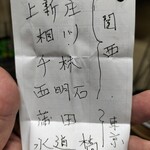 上新庄
相川
千林
西明石
関西
蒲田
水道橋
東京